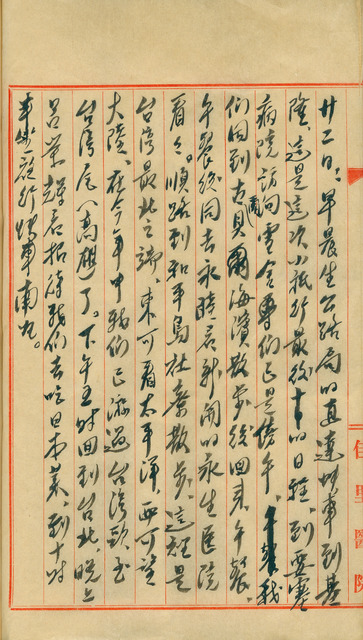 廿二日:早晨坐公路局的直達班車到基
隆,這是這次小旅行最後一日的日程,到要塞
病院訪問雪舍等們已是傍午。午餐我
們回到古貝爾海濱散步後回來,午餐
午餐後同去永時君新開的永生医院
看々。順路到和平島社寮散步。這裡是
台灣最北之端,東可看太平洋,西可望
大陸,在今年中我們已游過台灣頭至
台灣尾(高雄)了。下午五時回到台北,晚上
呂榮輝君招待我們去吃日本菜,到十時
半坐夜行快車南九。
佳里醫院